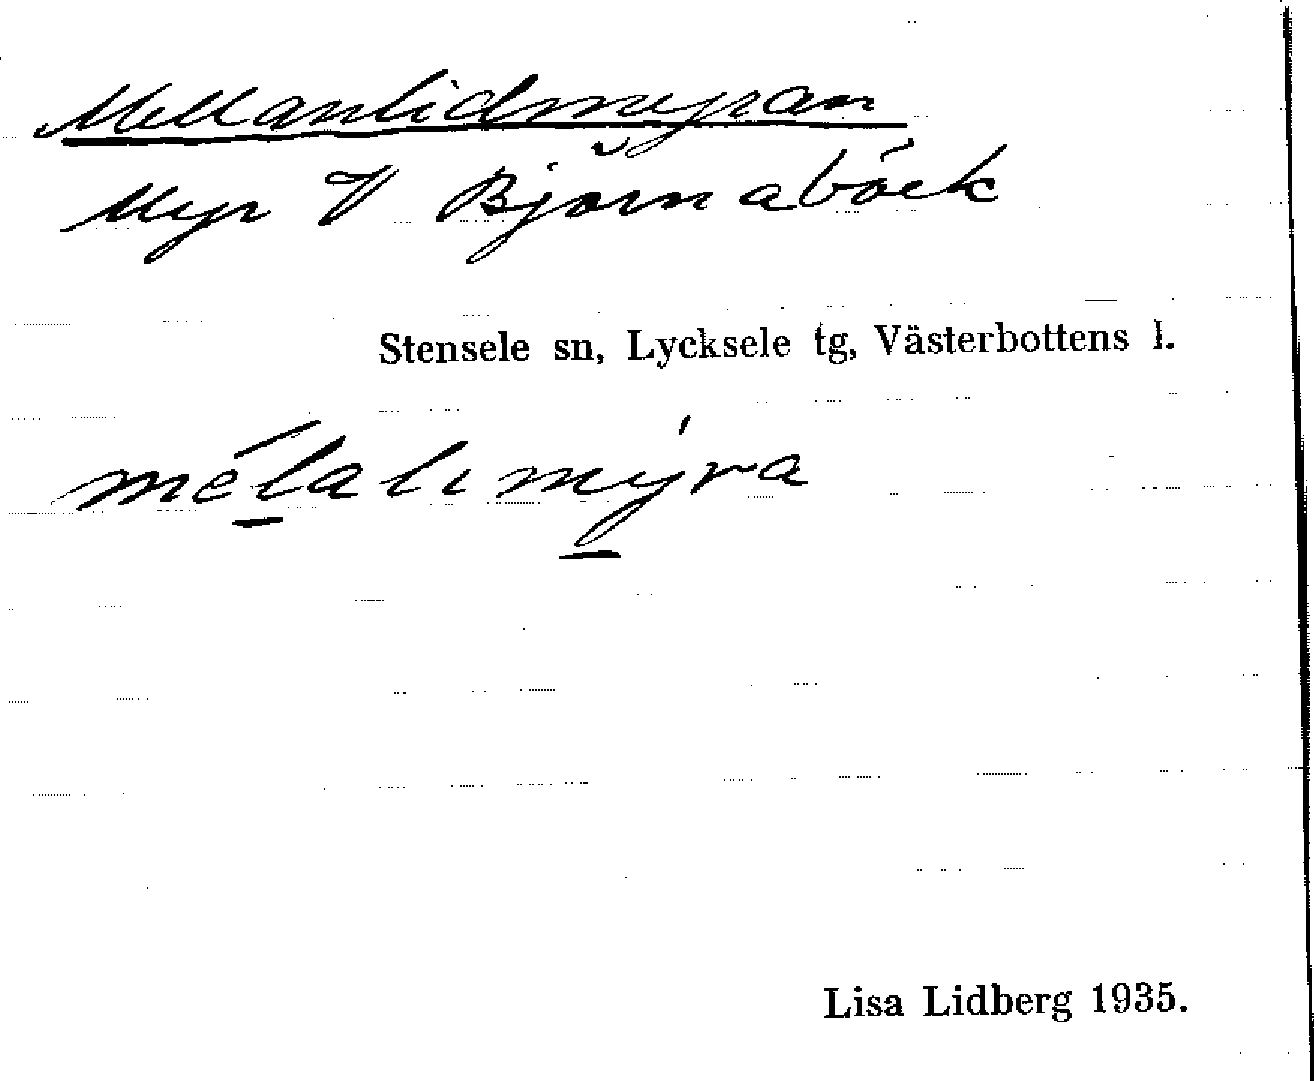 Mellanlidmyran
Myr V Björnabäck
Stensele sn, Lycksele tg, Västerbottens l.
mélalimýra
Lisa Lidberg 1935.